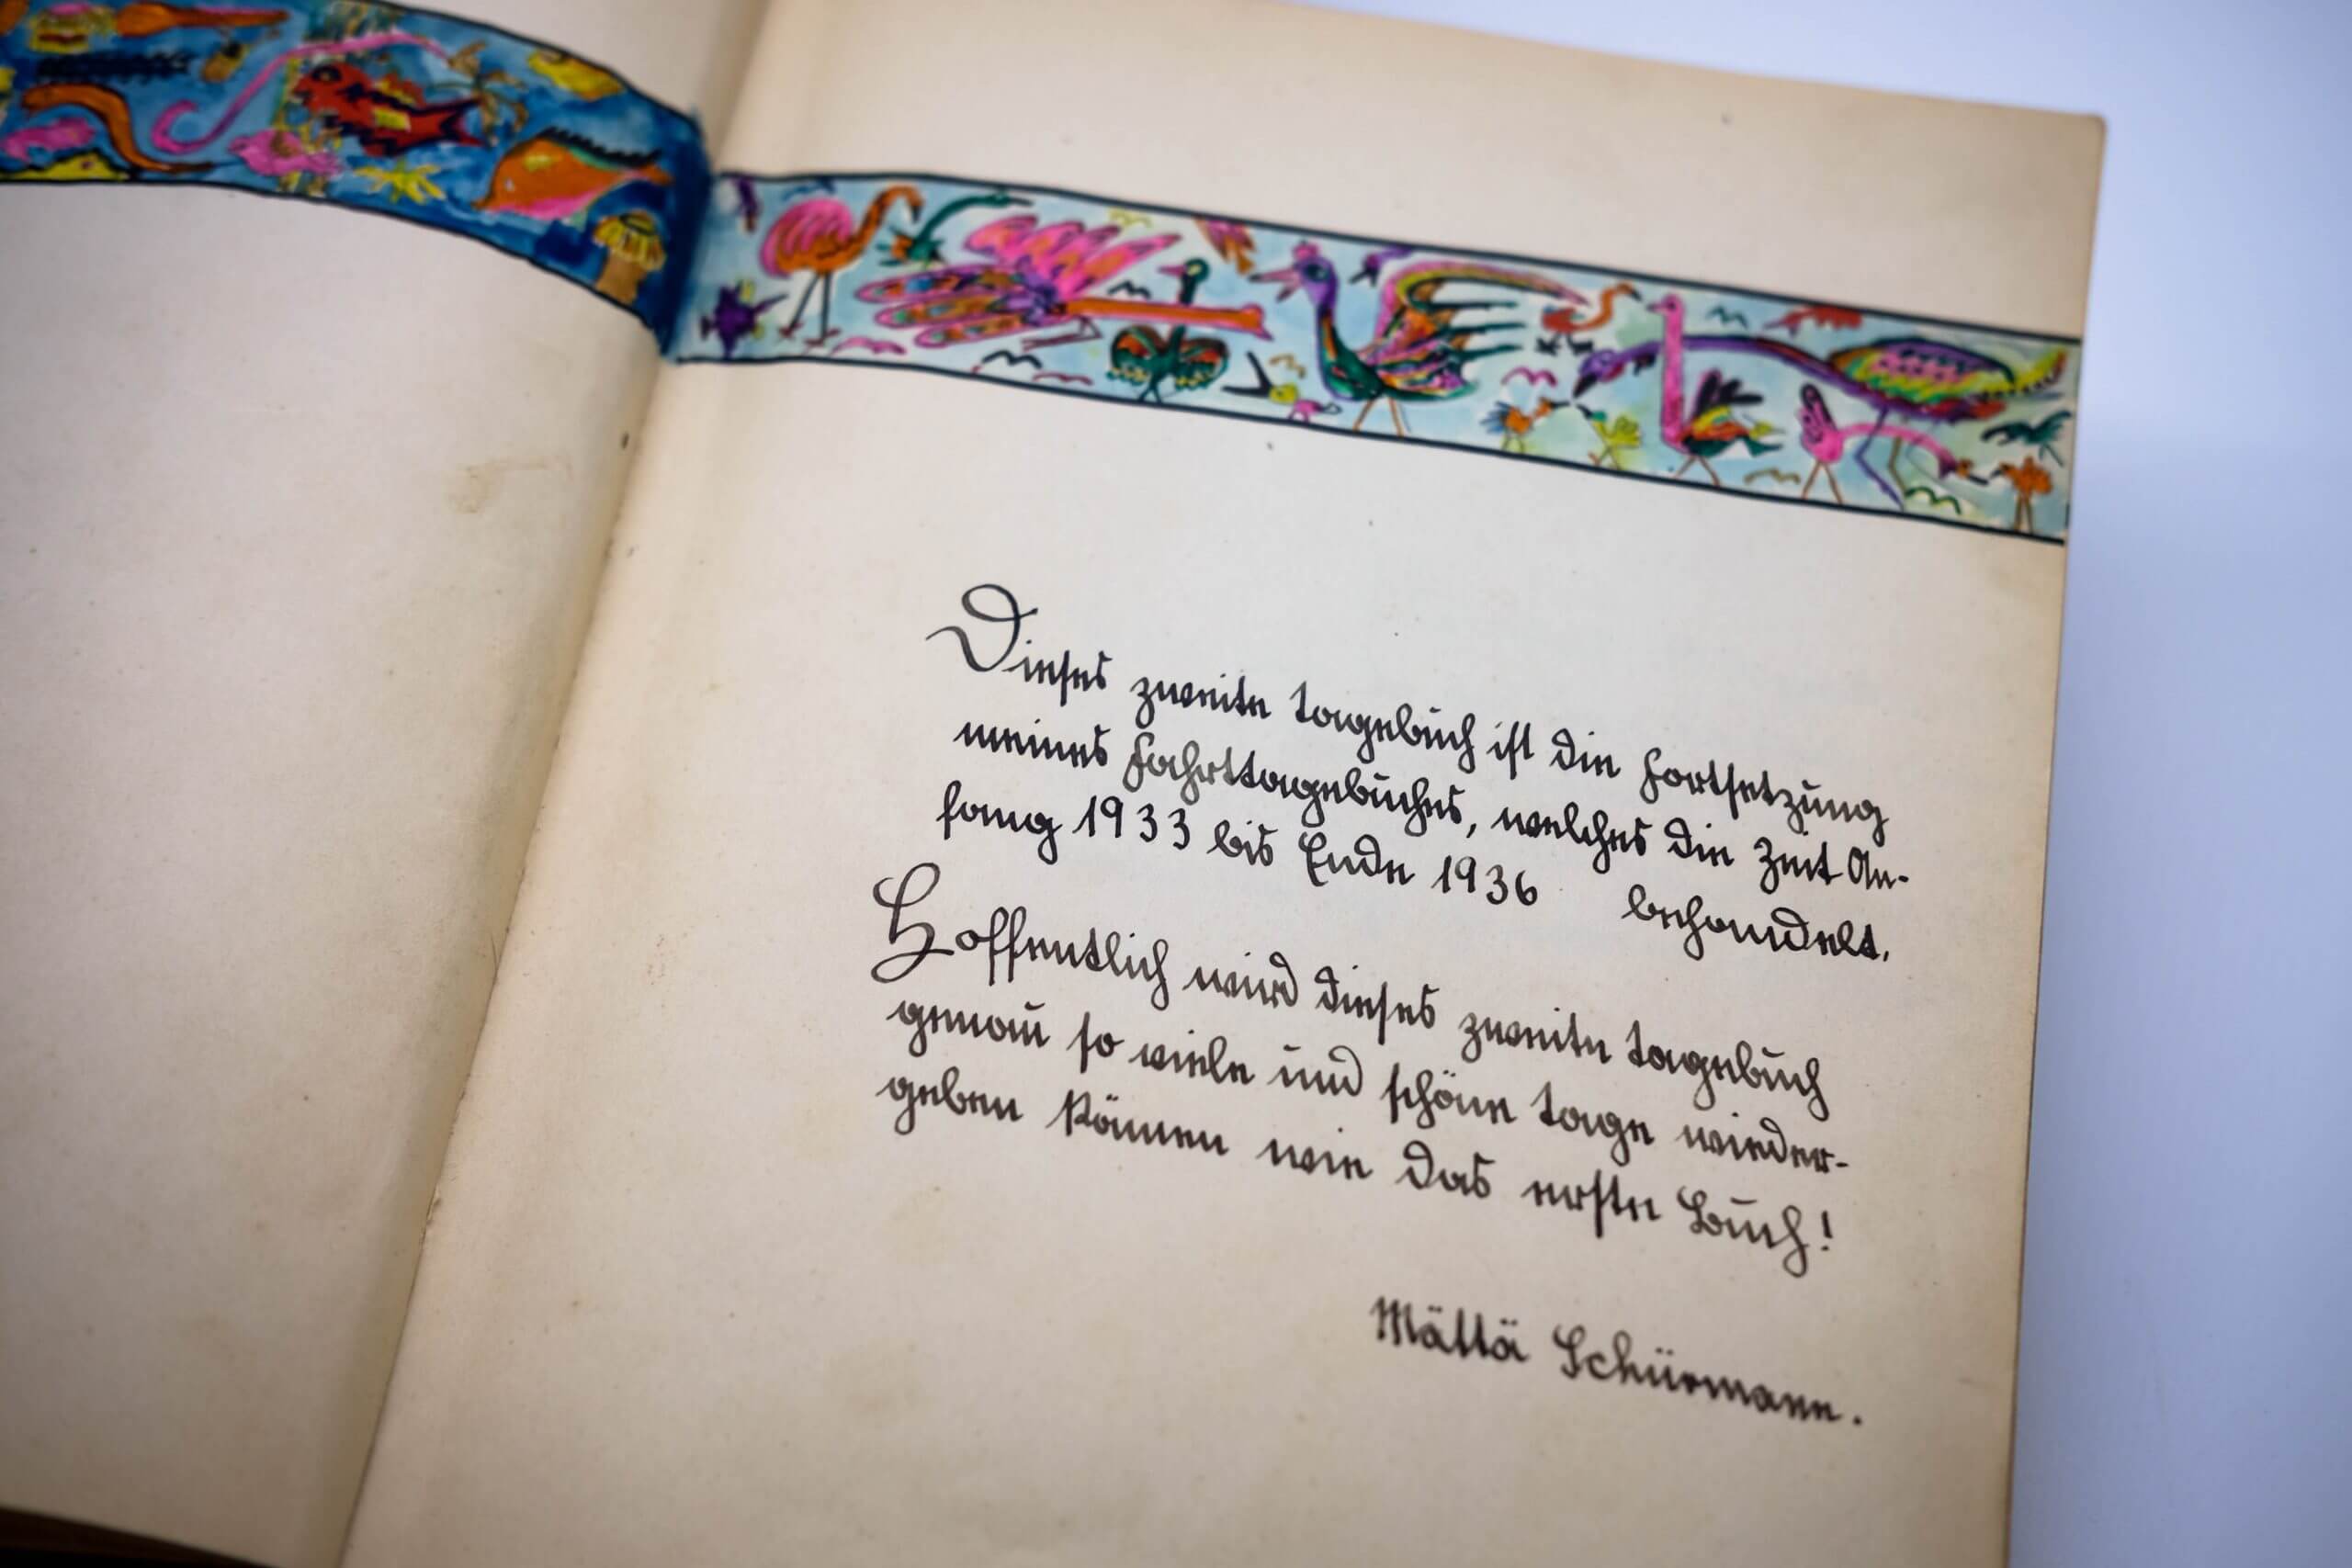 Dieses zweite Tagebuch ist die Fortsetzung
meines Fahrttagebuches, welches die Zeit An-
fang 1933 bis Ende 1936 behandelt.
Hoffentlich wird dieses zweite Tagebuch
genau so viele und schöne Tage wieder-
geben können wie das erste Buch!
Mättä Schürmann.